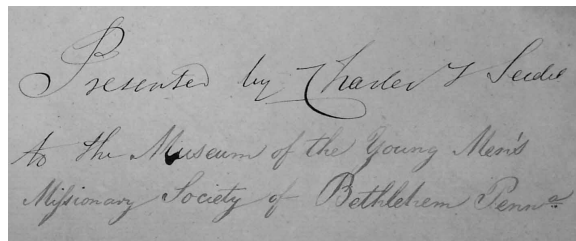 Presented by Charles F Seidel
to the Museum of the Young Men's
Missionary Society of Bethlehem Penna.